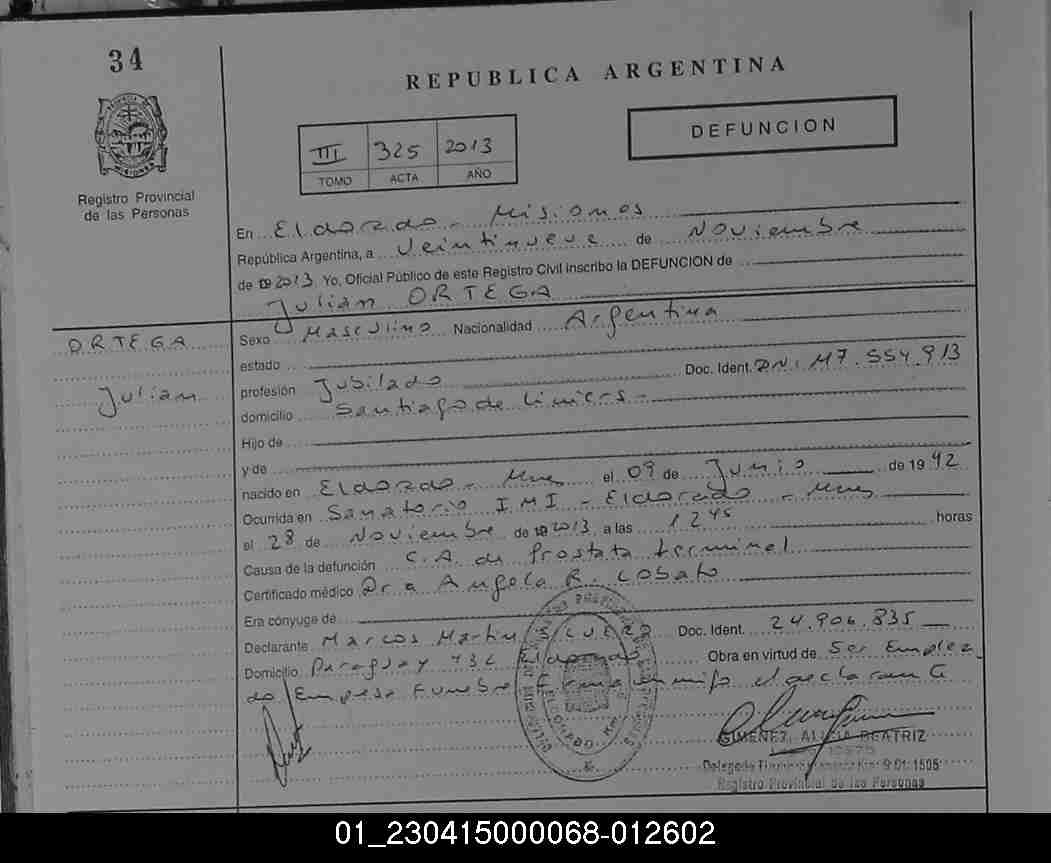 34
REPUBLICA ARGENTINA
DEFUNCION
III 325 2013
TOMO ACTA AÑO
Registro Provincial
de las Personas
En Eldorado - Misiones
República Argentina, a Veintinueve de Noviembre
de 2013 Yo, Oficial Público de este Registro Civil inscribo la DEFUNCION de
Julián ORTEGA
ORTEGA
Julian
Sexo Masculino Nacionalidad Argentina
estado
profesión Jubilado Doc. Ident. DNI M7.554.913
domicilio Santiago de Liniers -
Hijo de
y de
nacido en Eldorado - Mnes el 09 de Junio de 1942
Ocurrida en Sanatorio IMI - Eldorado - Mnes
el 28 de Noviembre de 2013 a las 1245 horas
Causa de la defunción C.A. de Prostata terminal
Certificado médico Dra Angela R. Lobato
Era cónyuge de
Declarante Marcos Martin Doc. Ident. 24.906.835
Domicilio Paraguay Eldorado Obra en virtud de Ser Emplea
do Empresa Funebre Firma el declarante
GIMENEZ, ALICIA BEATRIZ
Registro Provincial de las Personas
01_230415000068-012602